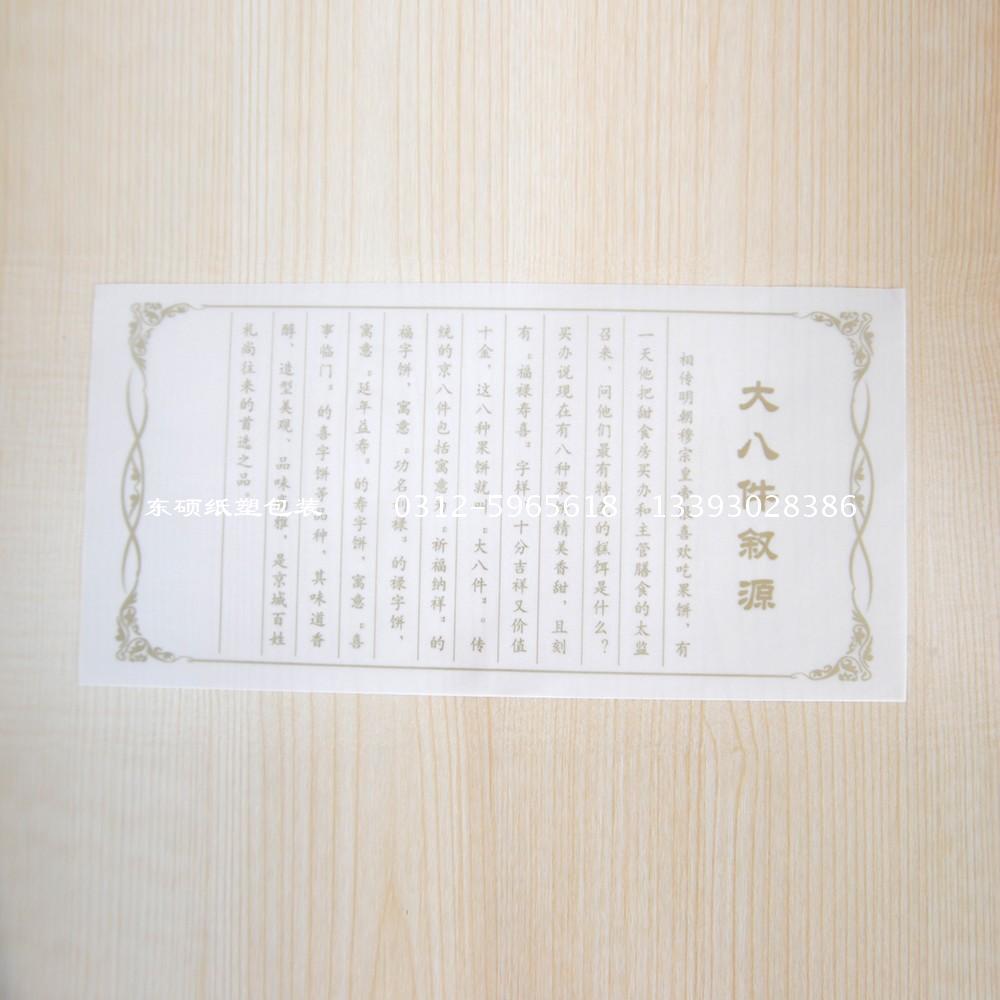 大八件叙源
相传明朝穆宗皇很喜欢吃果饼，有
一天他把甜食房买办和主管膳食的太监
召来，问他们最有特的糕饵是什么？
买办说现在有八种果精美香甜，且刻
有“福禄寿喜”字样十分吉祥又价值
十金，这八种果饼就叫“大八件”。传
统的京八件包括寓意“祈福纳祥”的
福字饼，寓意“功名禄”的禄字饼，
寓意“延年益寿”的寿字饼，寓意“喜
事临门”的喜字饼等品种，其味道香
醇、造型美观、品味雅，是京城百姓
礼尚往来的首选之品
东硕纸塑包装 0312-5965618 13393028386